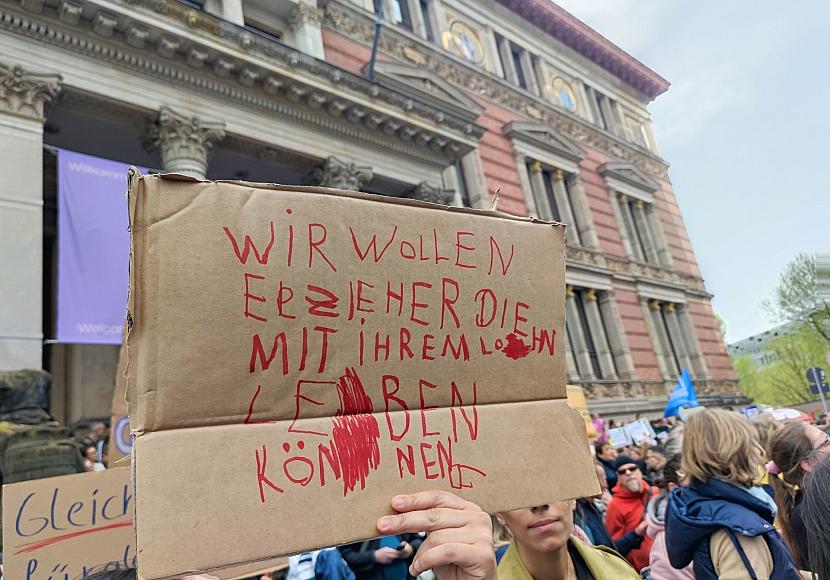 Willkommen
WIR WOLLEN
ERZIEHER DIE
MIT IHREM LOHN
LEBEN
KÖNNEN
Gleich